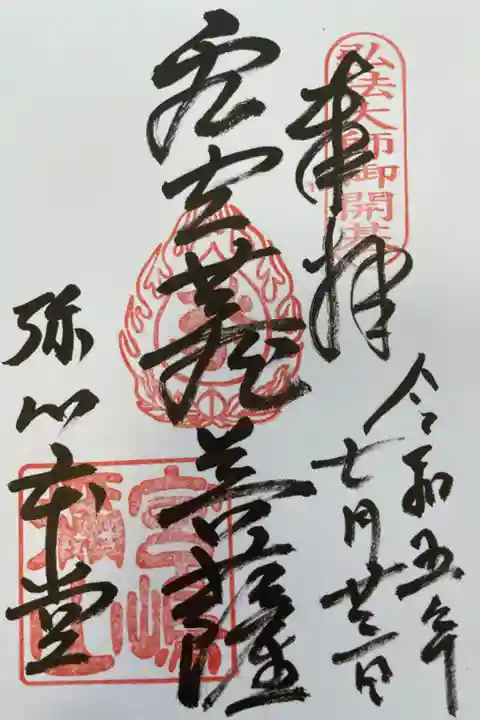 弘法大師御開基
奉拝
令和五年
七月
虚空蔵菩薩
弥山本堂
宮嶋
彌山